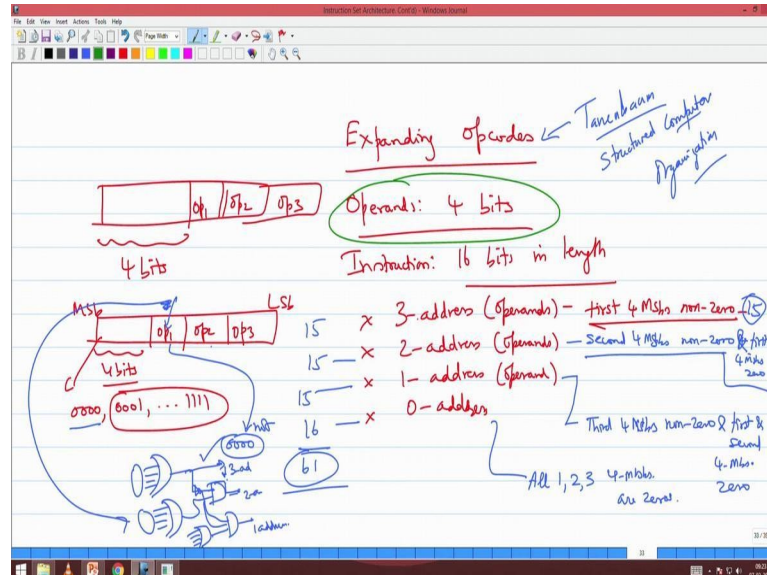 Instruction Set Architecture. Cont'd) - Windows Journal
File Edit View Insert Actions Tools Help
Page Width
B I
Expanding opcodes
Tanenbaum
Structured Computer
Organization
op1 op2 op3
4 bits
Operands: 4 bits
Instruction: 16 bits in length
MSb LSb
op1 op2 op3
4 bits
0000, 0001, ... 1111
15 x 3-address (operands) - first 4 MSbs non-zero - 15
15 - x 2-address (operands) - second 4 MSbs non-zero & first 4 MSbs zero
15 - x 1-address (operand)
Third 4 MSbs non-zero & first & second 4-MSbs. zero
16 - x 0-address
All 1, 2, 3 4-MSbs. are zeros.
61
not
0000
3-ad
2-a
1 address
33
33 / 3
09:23